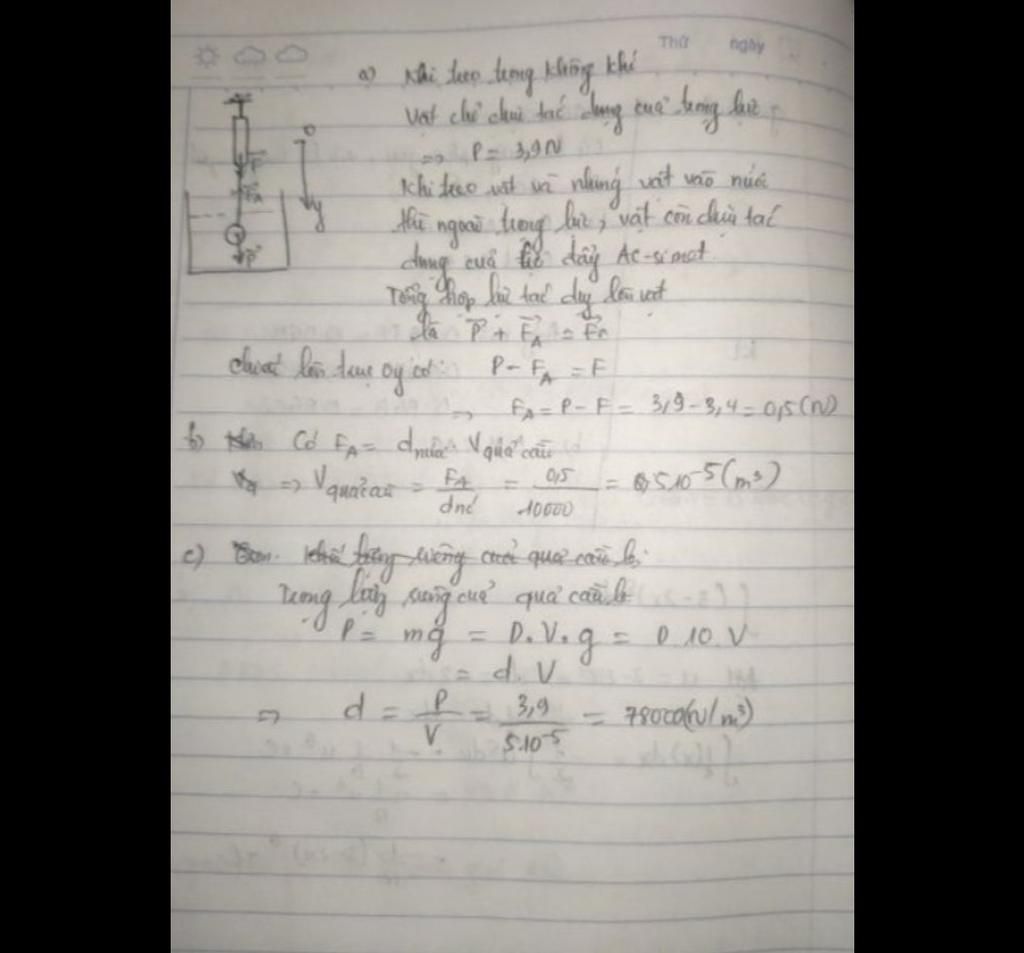 Thứ ngày
a) Khi treo trong không khí
vật chỉ chịu tác dụng của trọng lực
=> P = 3,9N
Khi treo vật và nhúng vật vào nước
thì ngoài trọng lực, vật còn chịu tác
dụng của lực đẩy Ac-si-met.
Tổng hợp lực tác dụng lên vật
là P + F_A =
O
F
F_A
y
P
chiếu lên trục oy có: P - F_A = F
=> F_A = P - F = 3,9 - 3,4 = 0,5 (N)
b) Có F_A = d nước V quả cầu
=> V quả cầu = F_A/d nc = 0,5/10000 = 5.10^-5 (m³)
c) Khối lượng riêng của quả cầu là:
Trọng lượng riêng của quả cầu là
P = mg = D.V.g = D.10.V
= d.V
=> d = P/V = 3,9/5.10^-5 = 78000 (N/m³)